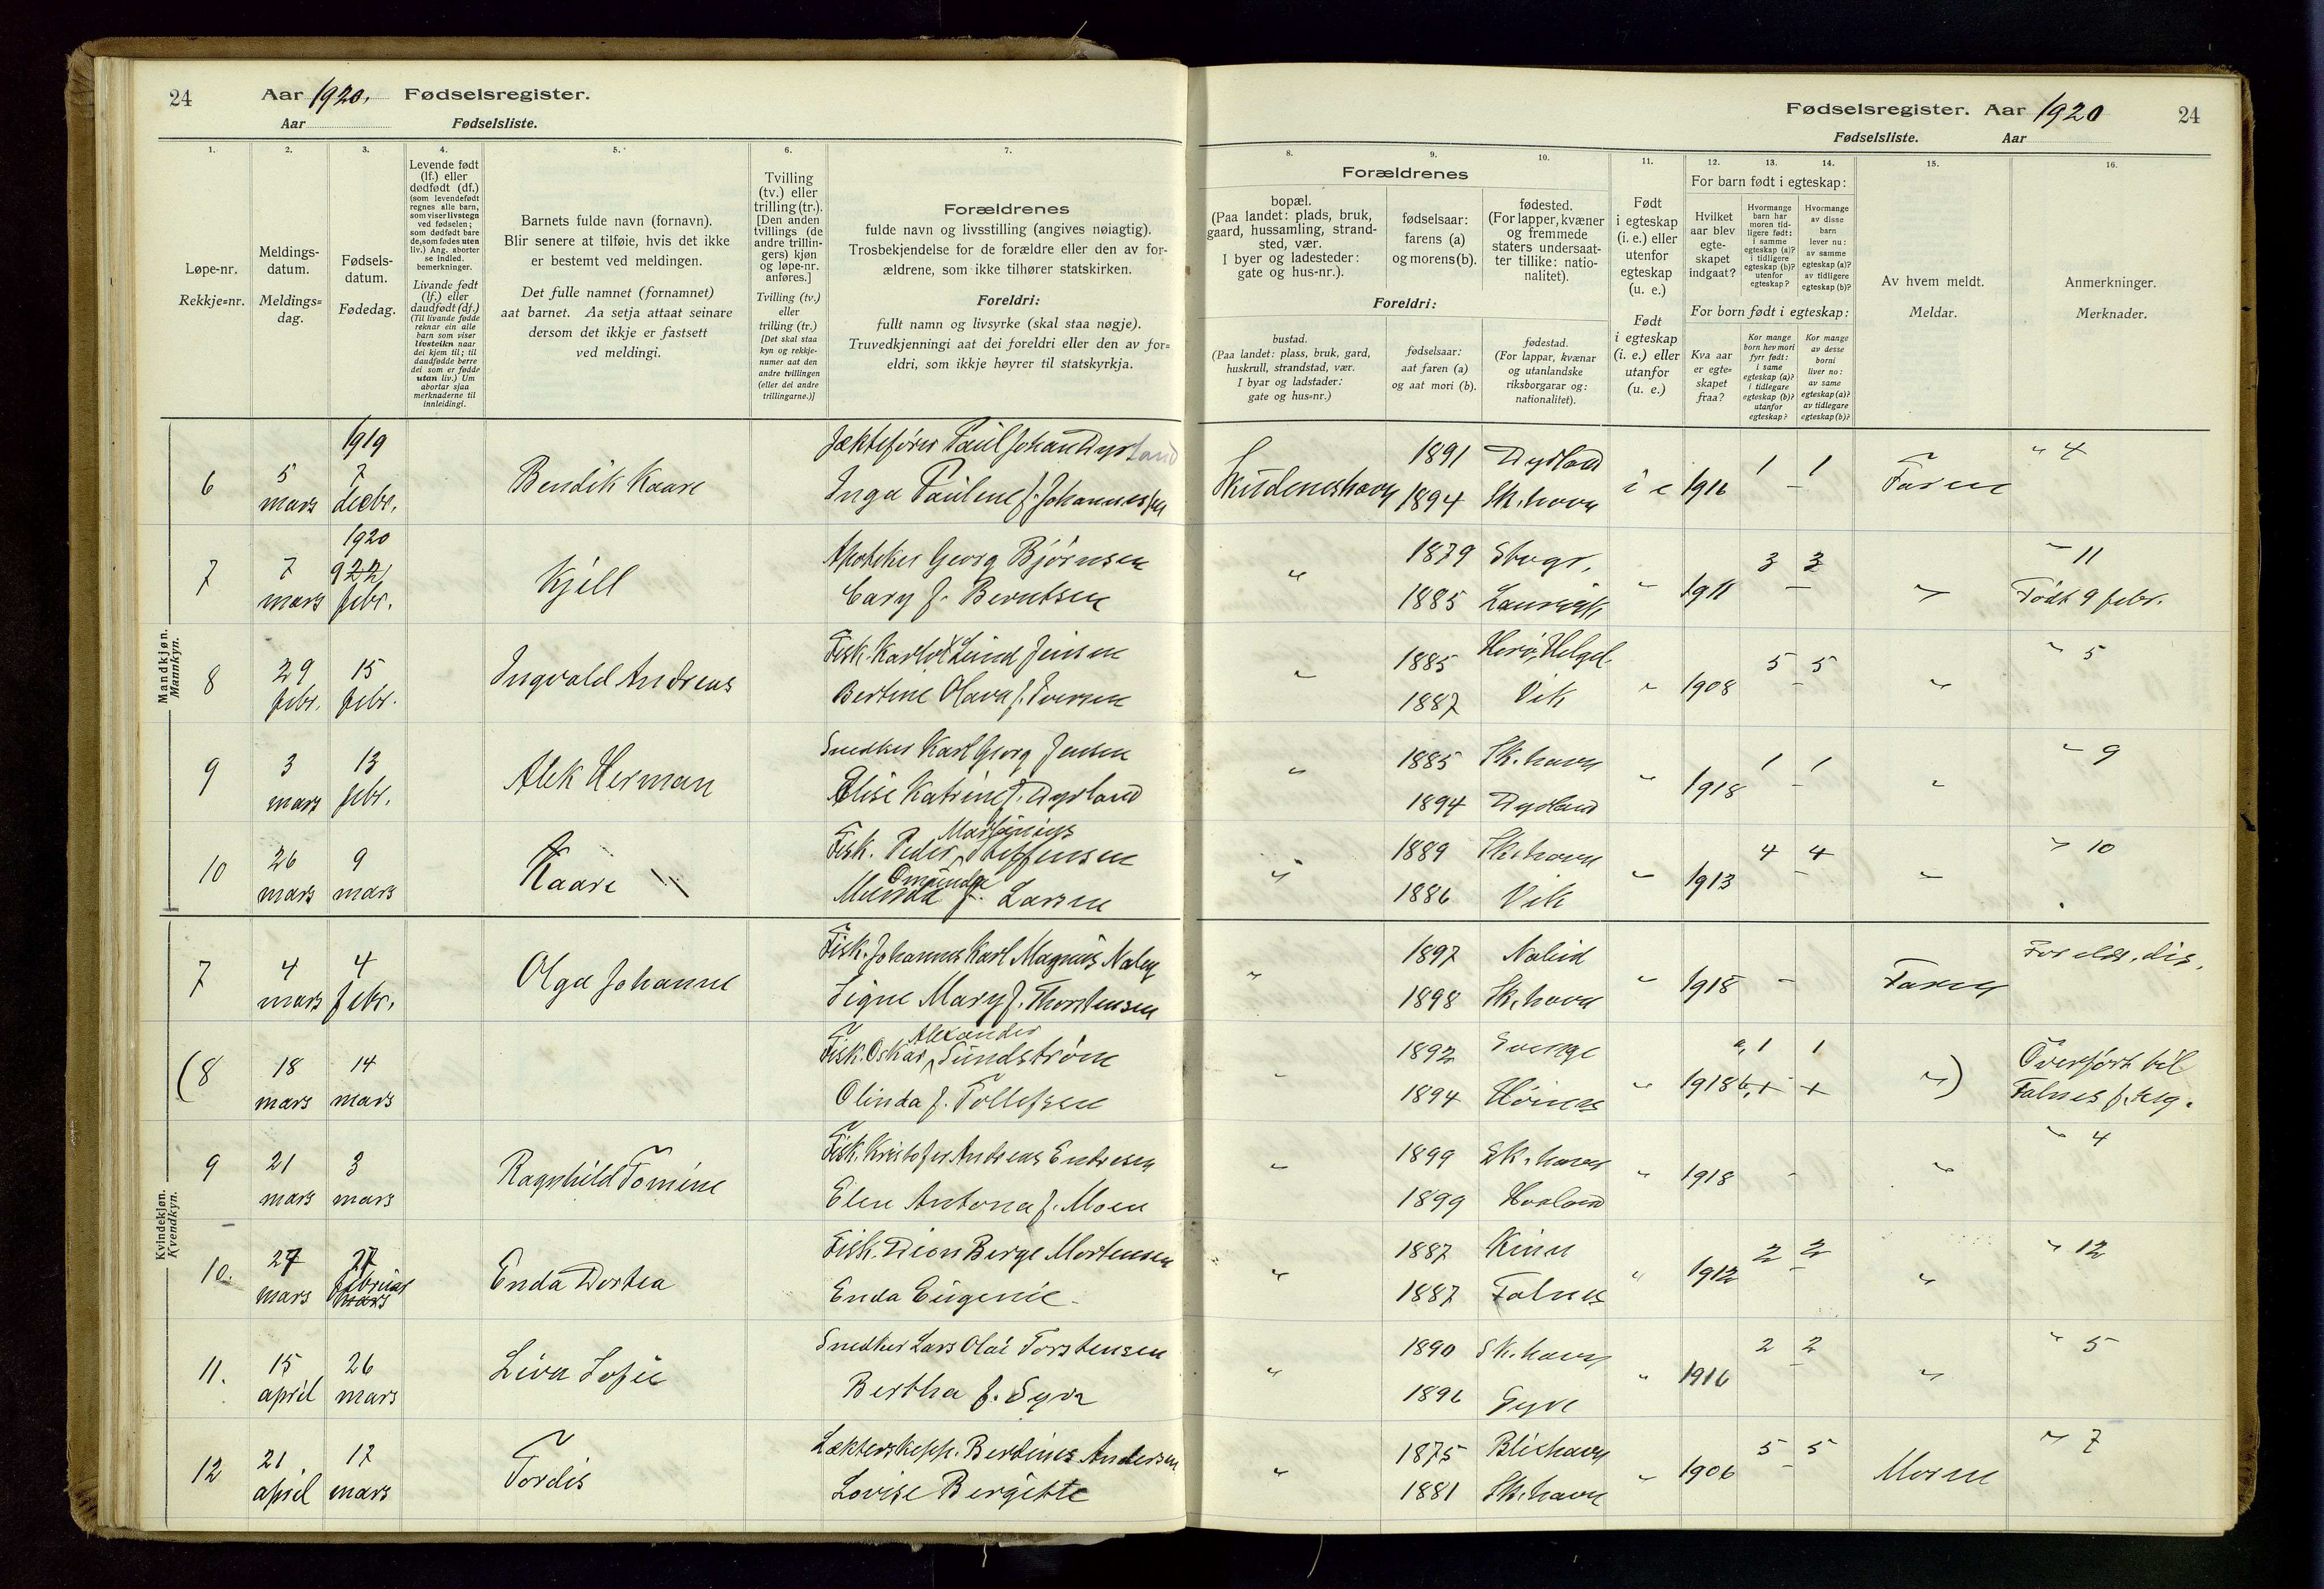 24 Aar 1920. Fødselsregister.
Aar Fødselsliste.
1. 2. 3. 4. 5. 6. 7.
Løpe-nr.
Rekkje=nr.
Meldings-
datum.
Meldings=
dag.
Fødsels-
datum.
Fødedag.
Levende født
(lf.) eller
dødfødt (df.)
(som levendefødt
regnes alle barn,
som viser livstegn
ved fødselen;
som dødfødt bare
de, som fødes uten
liv.) Ang. aborter
se indled.
bemerkninger.
Livande født
(lf.) eller
daudfødt (df.)
(Til livande fødde
reknar ein alle
barn som viser
livsteikn naar
dei kjem til; til
daudfødde berre
dei som er fødde
utan liv.) Um
abortar sjaa
merknaderne til
innleidingi.
Barnets fulde navn (fornavn).
Blir senere at tilføie, hvis det ikke
er bestemt ved meldingen.
Det fulle namnet (fornamnet)
aat barnet. Aa setja attaat seinare
dersom det ikkje er fastsett
ved meldingi.
Tvilling
(tv.) eller
trilling (tr.).
[Den anden
tvillings (de
andre trillin-
gers) kjøn
og løpe-nr.
anføres.]
Tvilling (tv.)
eller
trilling (tr.)
[Det skal staa
kyn og rekkje-
numer aat den
andre tvillingen
(eller dei andre
trillingarne.)]
Forældrenes
fulde navn og livsstilling (angives nøiagtig).
Trosbekjendelse for de forældre eller den av for-
ældrene, som ikke tilhører statskirken.
Foreldri:
fullt namn og livsyrke (skal staa nøgje).
Truvedkjenningi aat dei foreldri eller den av for=
eldri, som ikkje høyrer til statskyrkja.
Mandkjøn.
Mannkyn.
1919
6 5 mars 7 decbr. Bendik Kaare
Jæktefører Paul Johan Dysland
Inga Pauline f. Johannessen
1920
7 7 mars 9 22 febr. Kjell
Apoteker Georg Bjørnsen
Cary f. Berntsen
8 29 febr. 15 febr. Ingvald Andreas
Fisk. Karl Lund Jensen
Bertine Olava f. Iversen
9 3 mars 13 febr. Alek Herman
Snedker Karl Georg Jensen
Elise Katrine f. Dysland
10 26 mars 9 mars Kaare
Fisk. Peder Steffensen
Omunda f. Larsen
Kvindekjøn.
Kvendkyn.
7 4 mars 4 febr. Olga Johanne
Fisk. Johannes Karl Magnus Naley
Signe Mary f. Thorstensen
(8 18 mars 14 mars
Alexander
Fisk. Oskar Sundstrøm
Olinda f. Tollefsen
9 21 mars 3 mars Ragnhild Tomine
Fisk. Kristofer Andreas Endresen
Elen Antona f. Moen
10. 27 mars 27 februar mars Enda Dortea
Fisk. Dion Berge Mortensen
Enda Eugenie
11. 15 april 26 mars Liva Sofie
Snedker Lars Olai Torstensen
Bertha f. Syre
12 21 april 17 mars Tordis
Lækterskipp. Bertines Andersen
Lovise Bergitte
Fødselsregister. Aar 1920 24
Fødselsliste. Aar
8. 9. 10. 11. 12. 13. 14. 15. 16.
Forældrenes
bopæl.
(Paa landet: plads, bruk,
gaard, hussamling, strand-
sted, vær.
I byer og ladesteder:
gate og hus-nr.).
fødselsaar:
farens (a)
og morens (b).
fødested.
(For lapper, kvæner
og fremmede
staters undersaat-
ter tillike: natio-
nalitet).
Foreldri:
bustad.
(Paa landet: plass, bruk, gard,
huskrull, strandstad, vær.
I byar og ladstader:
gate og hus=nr.)
fødselsaar:
aat faren (a)
og aat mori (b).
fødestad.
(For lappar, kvænar
og utanlandske
riksborgarar og:
nationalitet).
Født
i egteskap
(i. e.) eller
utenfor
egteskap
(u. e.)
Født
i egteskap
(i. e.) eller
utanfor
(u. e.)
For barn født i egteskap:
Hvilket
aar blev
egte-
skapet
indgaat?
Hvormange
barn har
moren tid-
ligere født:
i samme
egteskap (a)?
i tidligere
egteskap (b)?
utenfor
egteskap?
Hvormange
av disse
barn
lever nu:
av samme
egteskap (a)?
av tidligere
egteskap (b)?
For born født i egteskap:
Kva aar
er egte-
skapet
fraa?
Kor mange
born hev mori
fyrr født:
i same
egteskap (a)?
i tidlegare
egteskap (b)?
utanfor
egteskap?
Kor mange
av desse
borni
liver no:
av same
egteskap (a)?
av tidlegare
egteskap (b)?
Av hvem meldt.
Meldar.
Anmerkninger.
Merknader.
Skudeneshavn 1891 Dysland i e 1916 1 1 Faren " 4
1894 Sk.havn
" 1879 Stvgr. " 1911 3 3 " " 11
1885 Laurvik Født 9 febr.
" 1885 Herø, Helgel. " 1908 5 5 " " 5
1887 Vik
" 1885 Sk.havn " 1918 1 1 " " 9
1894 Dysland
" 1889 Sk.havn " 1913 4 4 " " 10
1886 Vik
" 1897 Naleid " 1918 - Faren
1898 Sk.havn
" 1892 Sverige " 1918 a, 1 1 ") Overført til
1894 b, + + Falnes f. reg.
" 1899 Sk.havn " 1918 - " " 4
1899 Hovland
" 1887 Kinn " 1912 2 2 " " 12
1887 Falnes
" 1890 Sk.havn " 1916 2 2 " " 5
1896 Syre
" 1875 Blixhavn " 1906 5 5 Moren " 7
1881 Sk.havn